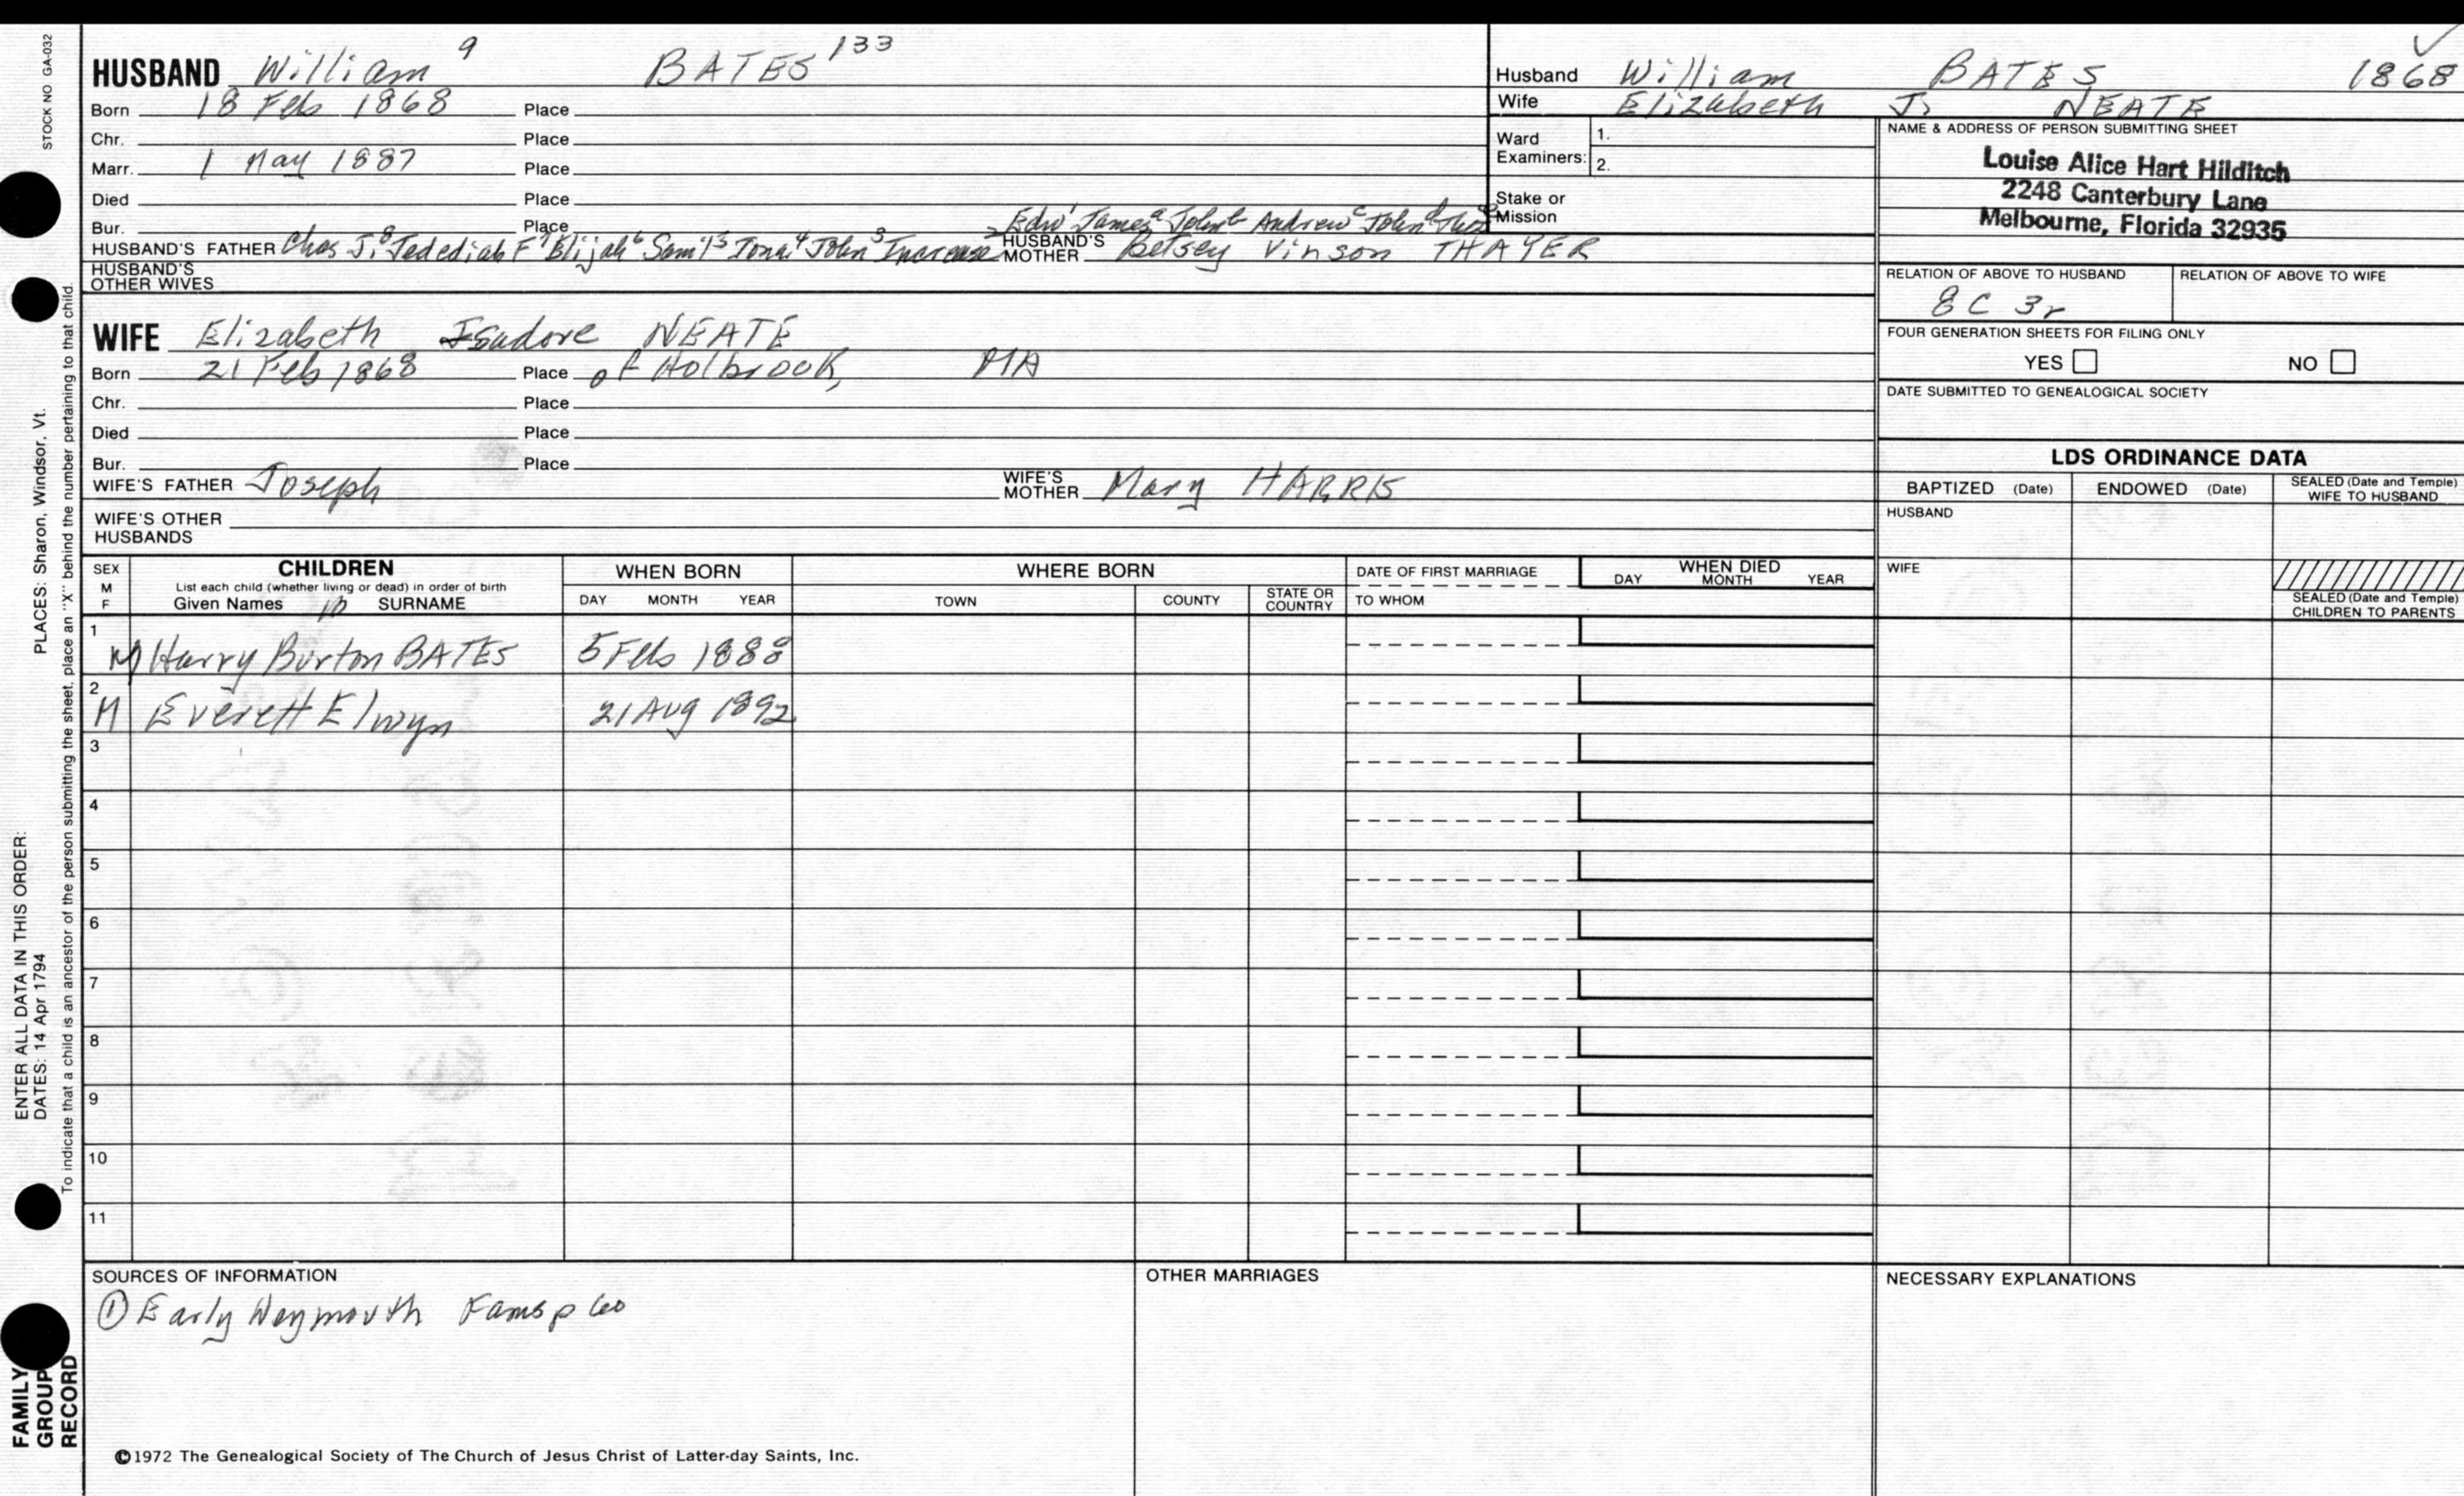 STOCK NO GA-032
HUSBAND William 9 BATES 133
Born 18 Feb 1868 Place
Chr. Place
Marr. 1 May 1887 Place
Died Place
Bur. Place
Edw 1 James a John b Andrew c John d
HUSBAND'S FATHER Chas J. 8 Jedediah F 7 Elijah 6 Sam'l 5 Jona 4 John 3 Increase 2 HUSBAND'S MOTHER Betsey Vinson THAYER
HUSBAND'S OTHER WIVES
WIFE Elizabeth Isadore NEATE
Born 21 Feb 1868 Place of Holbrook, MA
Chr. Place
Died Place
Bur. Place
WIFE'S FATHER Joseph WIFE'S MOTHER Mary HARRIS
WIFE'S OTHER HUSBANDS
Husband William BATES 1868
Wife Elizabeth J. NEATE
Ward Examiners: 1.
2.
Stake or Mission
NAME & ADDRESS OF PERSON SUBMITTING SHEET
Louise Alice Hart Hilditch
2248 Canterbury Lane
Melbourne, Florida 32935
RELATION OF ABOVE TO HUSBAND RELATION OF ABOVE TO WIFE
8 C 3r
FOUR GENERATION SHEETS FOR FILING ONLY
YES NO
DATE SUBMITTED TO GENEALOGICAL SOCIETY
LDS ORDINANCE DATA
BAPTIZED (Date) ENDOWED (Date) SEALED (Date and Temple) WIFE TO HUSBAND
HUSBAND
WIFE
SEALED (Date and Temple) CHILDREN TO PARENTS
SEX M F
CHILDREN
List each child (whether living or dead) in order of birth
Given Names 10 SURNAME
WHEN BORN
DAY MONTH YEAR
WHERE BORN
TOWN COUNTY STATE OR COUNTRY
DATE OF FIRST MARRIAGE
TO WHOM
WHEN DIED
DAY MONTH YEAR
1 M Harry Burton BATES 5 Feb 1888
2 M Everett Elwyn 21 Aug 1892
3
4
5
6
7
8
9
10
11
SOURCES OF INFORMATION
① Early Weymouth Fams p 60
OTHER MARRIAGES
NECESSARY EXPLANATIONS
©1972 The Genealogical Society of The Church of Jesus Christ of Latter-day Saints, Inc.
ENTER ALL DATA IN THIS ORDER:
DATES: 14 Apr 1794 PLACES: Sharon, Windsor, Vt.
To indicate that a child is an ancestor of the person submitting the sheet, place an "X" behind the number pertaining to that child.
FAMILY
GROUP
RECORD